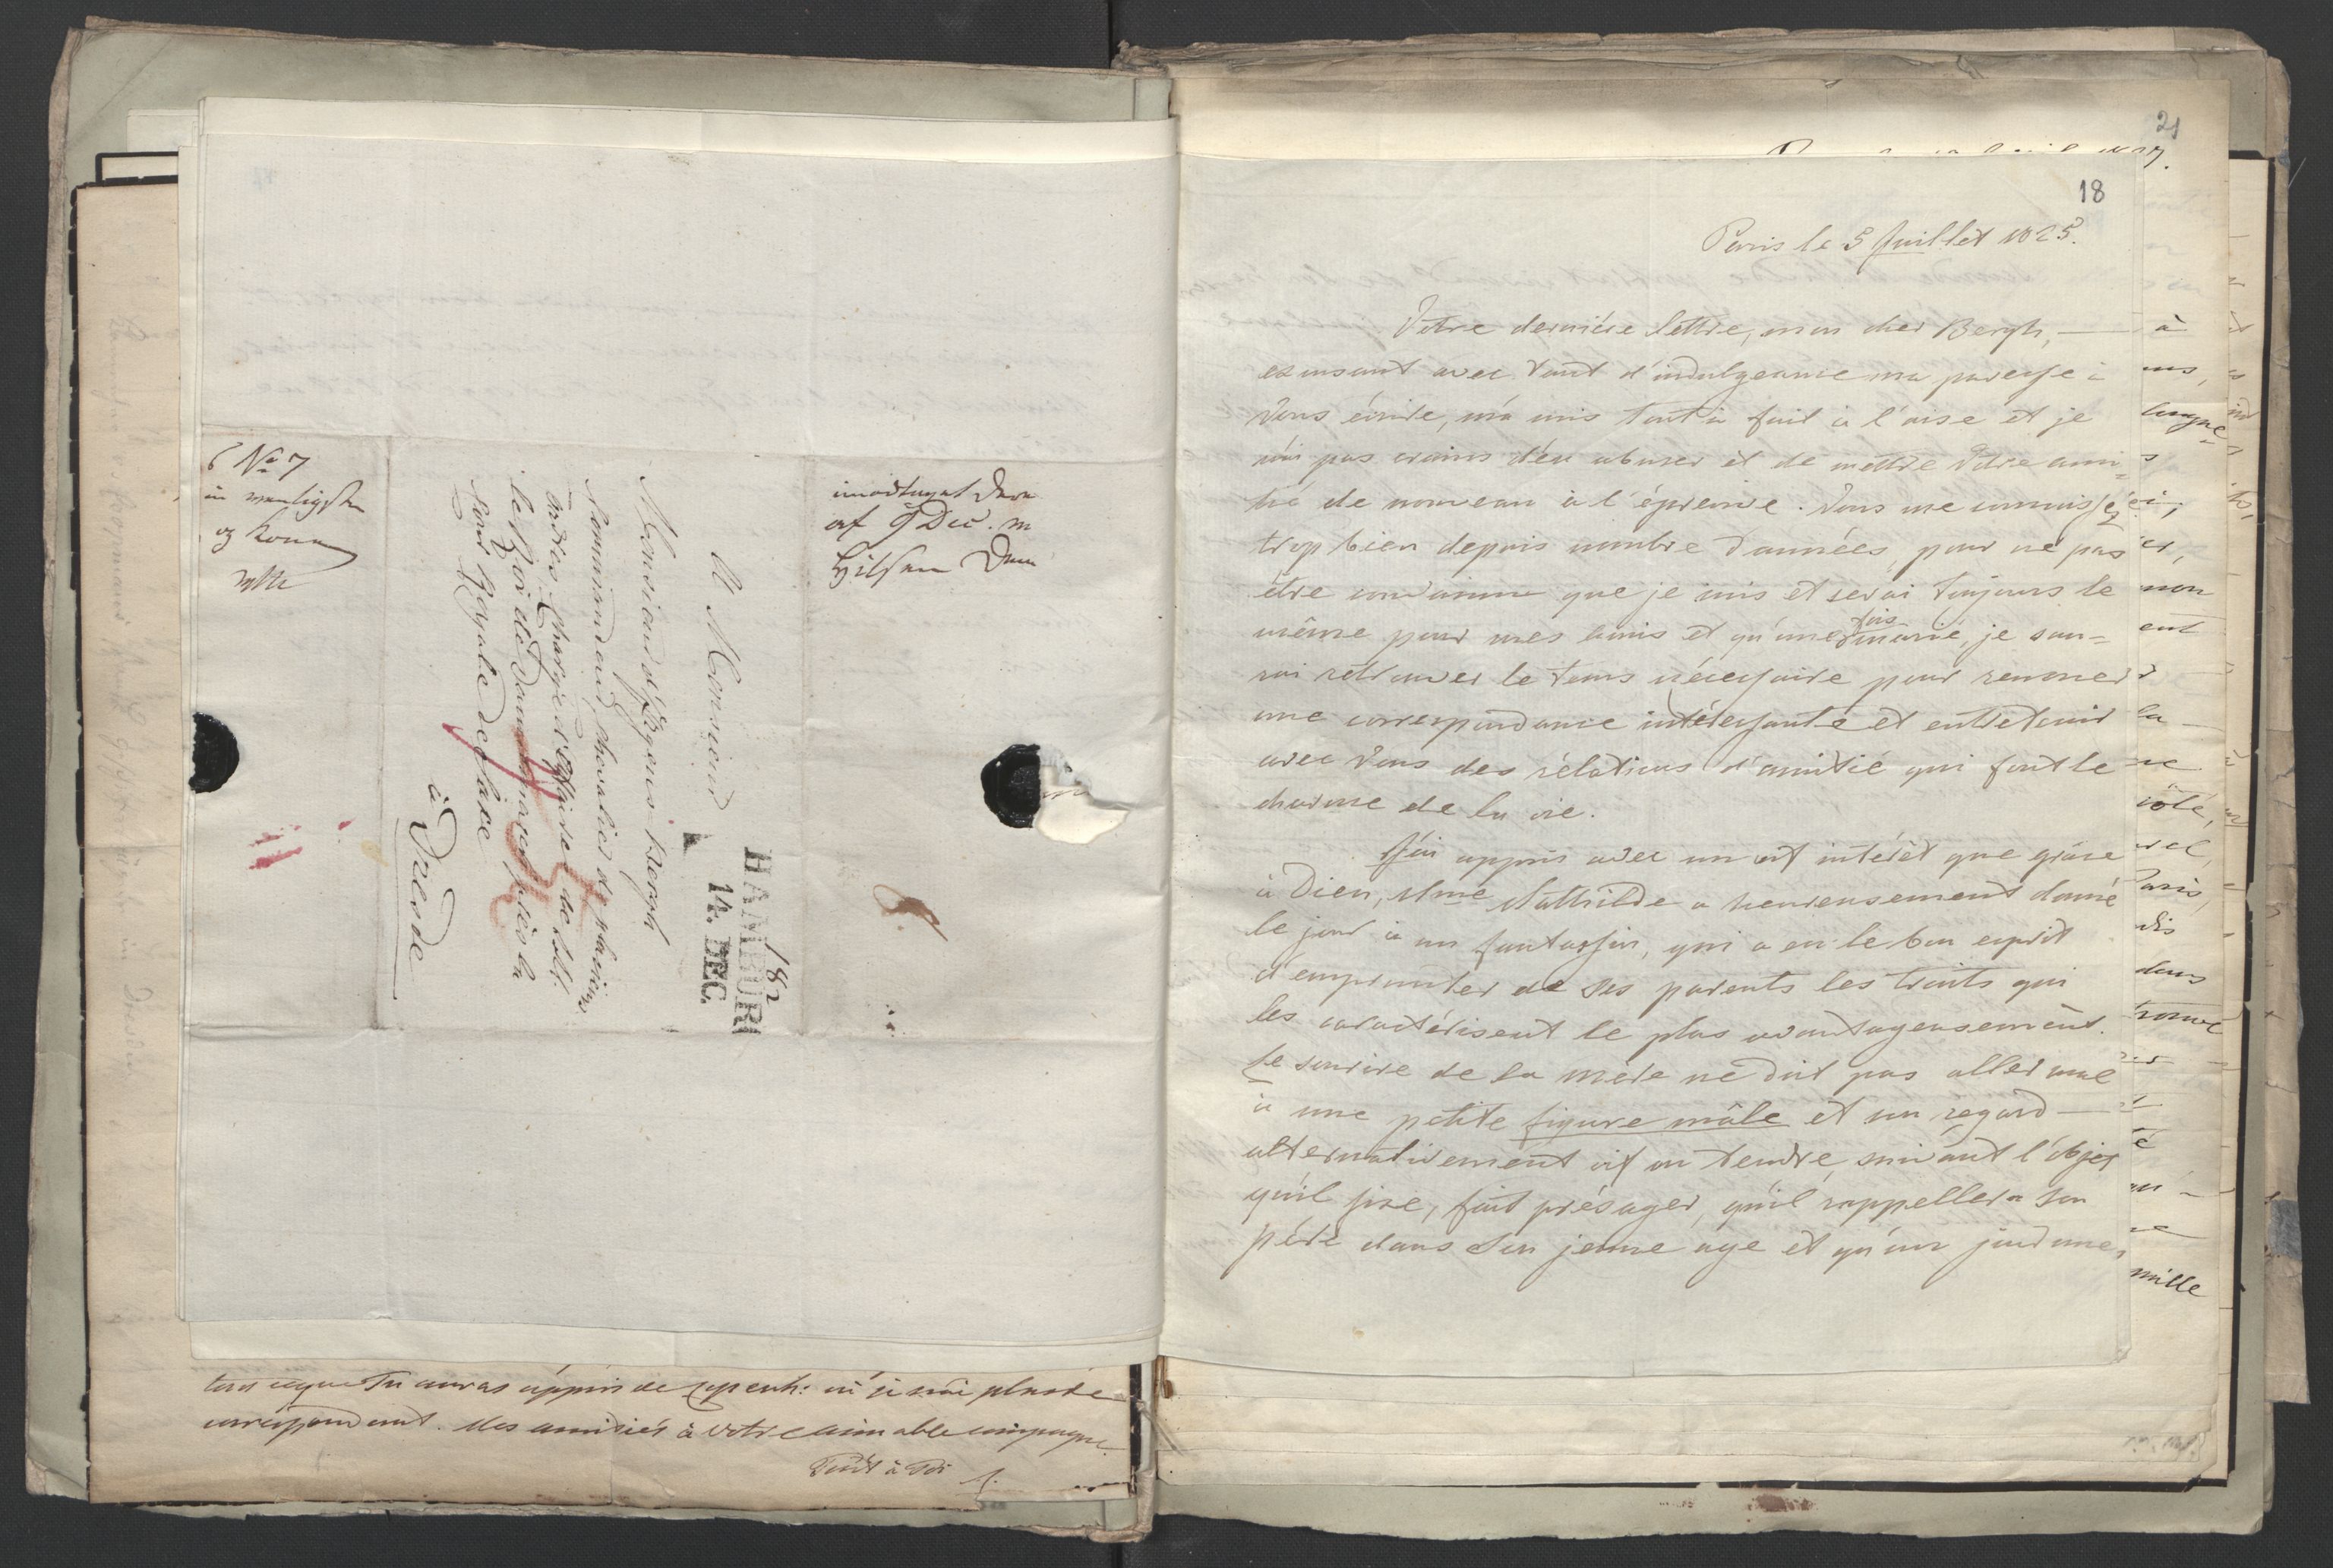 No 7
og
af 9 Dec. m
A Monsieur
Monsieur d'Irgens-Bergh
Commandeur, chevalier de plusieurs
ordres, Chargé d'affaires de S.M.
le Roi de Dannemarc près la
Cour Royale de Saxe
à Dresde
HAMBURG
14. DEC.
182
auras appris de
correspondant. Mes amitiés à votre aimable compagne.
Tout à Toi
21
18
Paris le 5 Juillet 1825.
Votre dernière lettre, mon cher Bergh,
excusant avec tant d'indulgeance ma paresse à
Vous écrire, m'a mis tout à fait à l'aise et je
n'ai pas crains d'en abuser et de mettre Votre ami=
tié de nouveau à l'épreuve. Vous me connoissez
trop bien depuis nombre d'années, pour ne pas
être convaincu que je suis et serai toujours le
même pour mes amis et qu'une fois marié, je sau=
rai retrouver le tems nécessaire pour renouer
une correspondance intéressante et entretenir
avec Vous des rélations d'amitié qui font le
charme de la vie.
J'ai appris avec un vif intérêt que grâce
à Dieu, Mme Mathilde a heureusement donné
le jour à un fantassin, qui a eu le bon esprit
d'emprunter de ses parents les traits qui
les caractérisent le plus avantageusement.
Le sourire de la mère ne doit pas aller mal
à une petite figure mâle et un regard
alternativement vif ou tendre, suivant l'objet
qu'il fixe, fait présager, qu'il rappellera son
père dans son jeune age et qu'un jour une
à
mon
ent
la
Paris,
dans
trouvé
mille